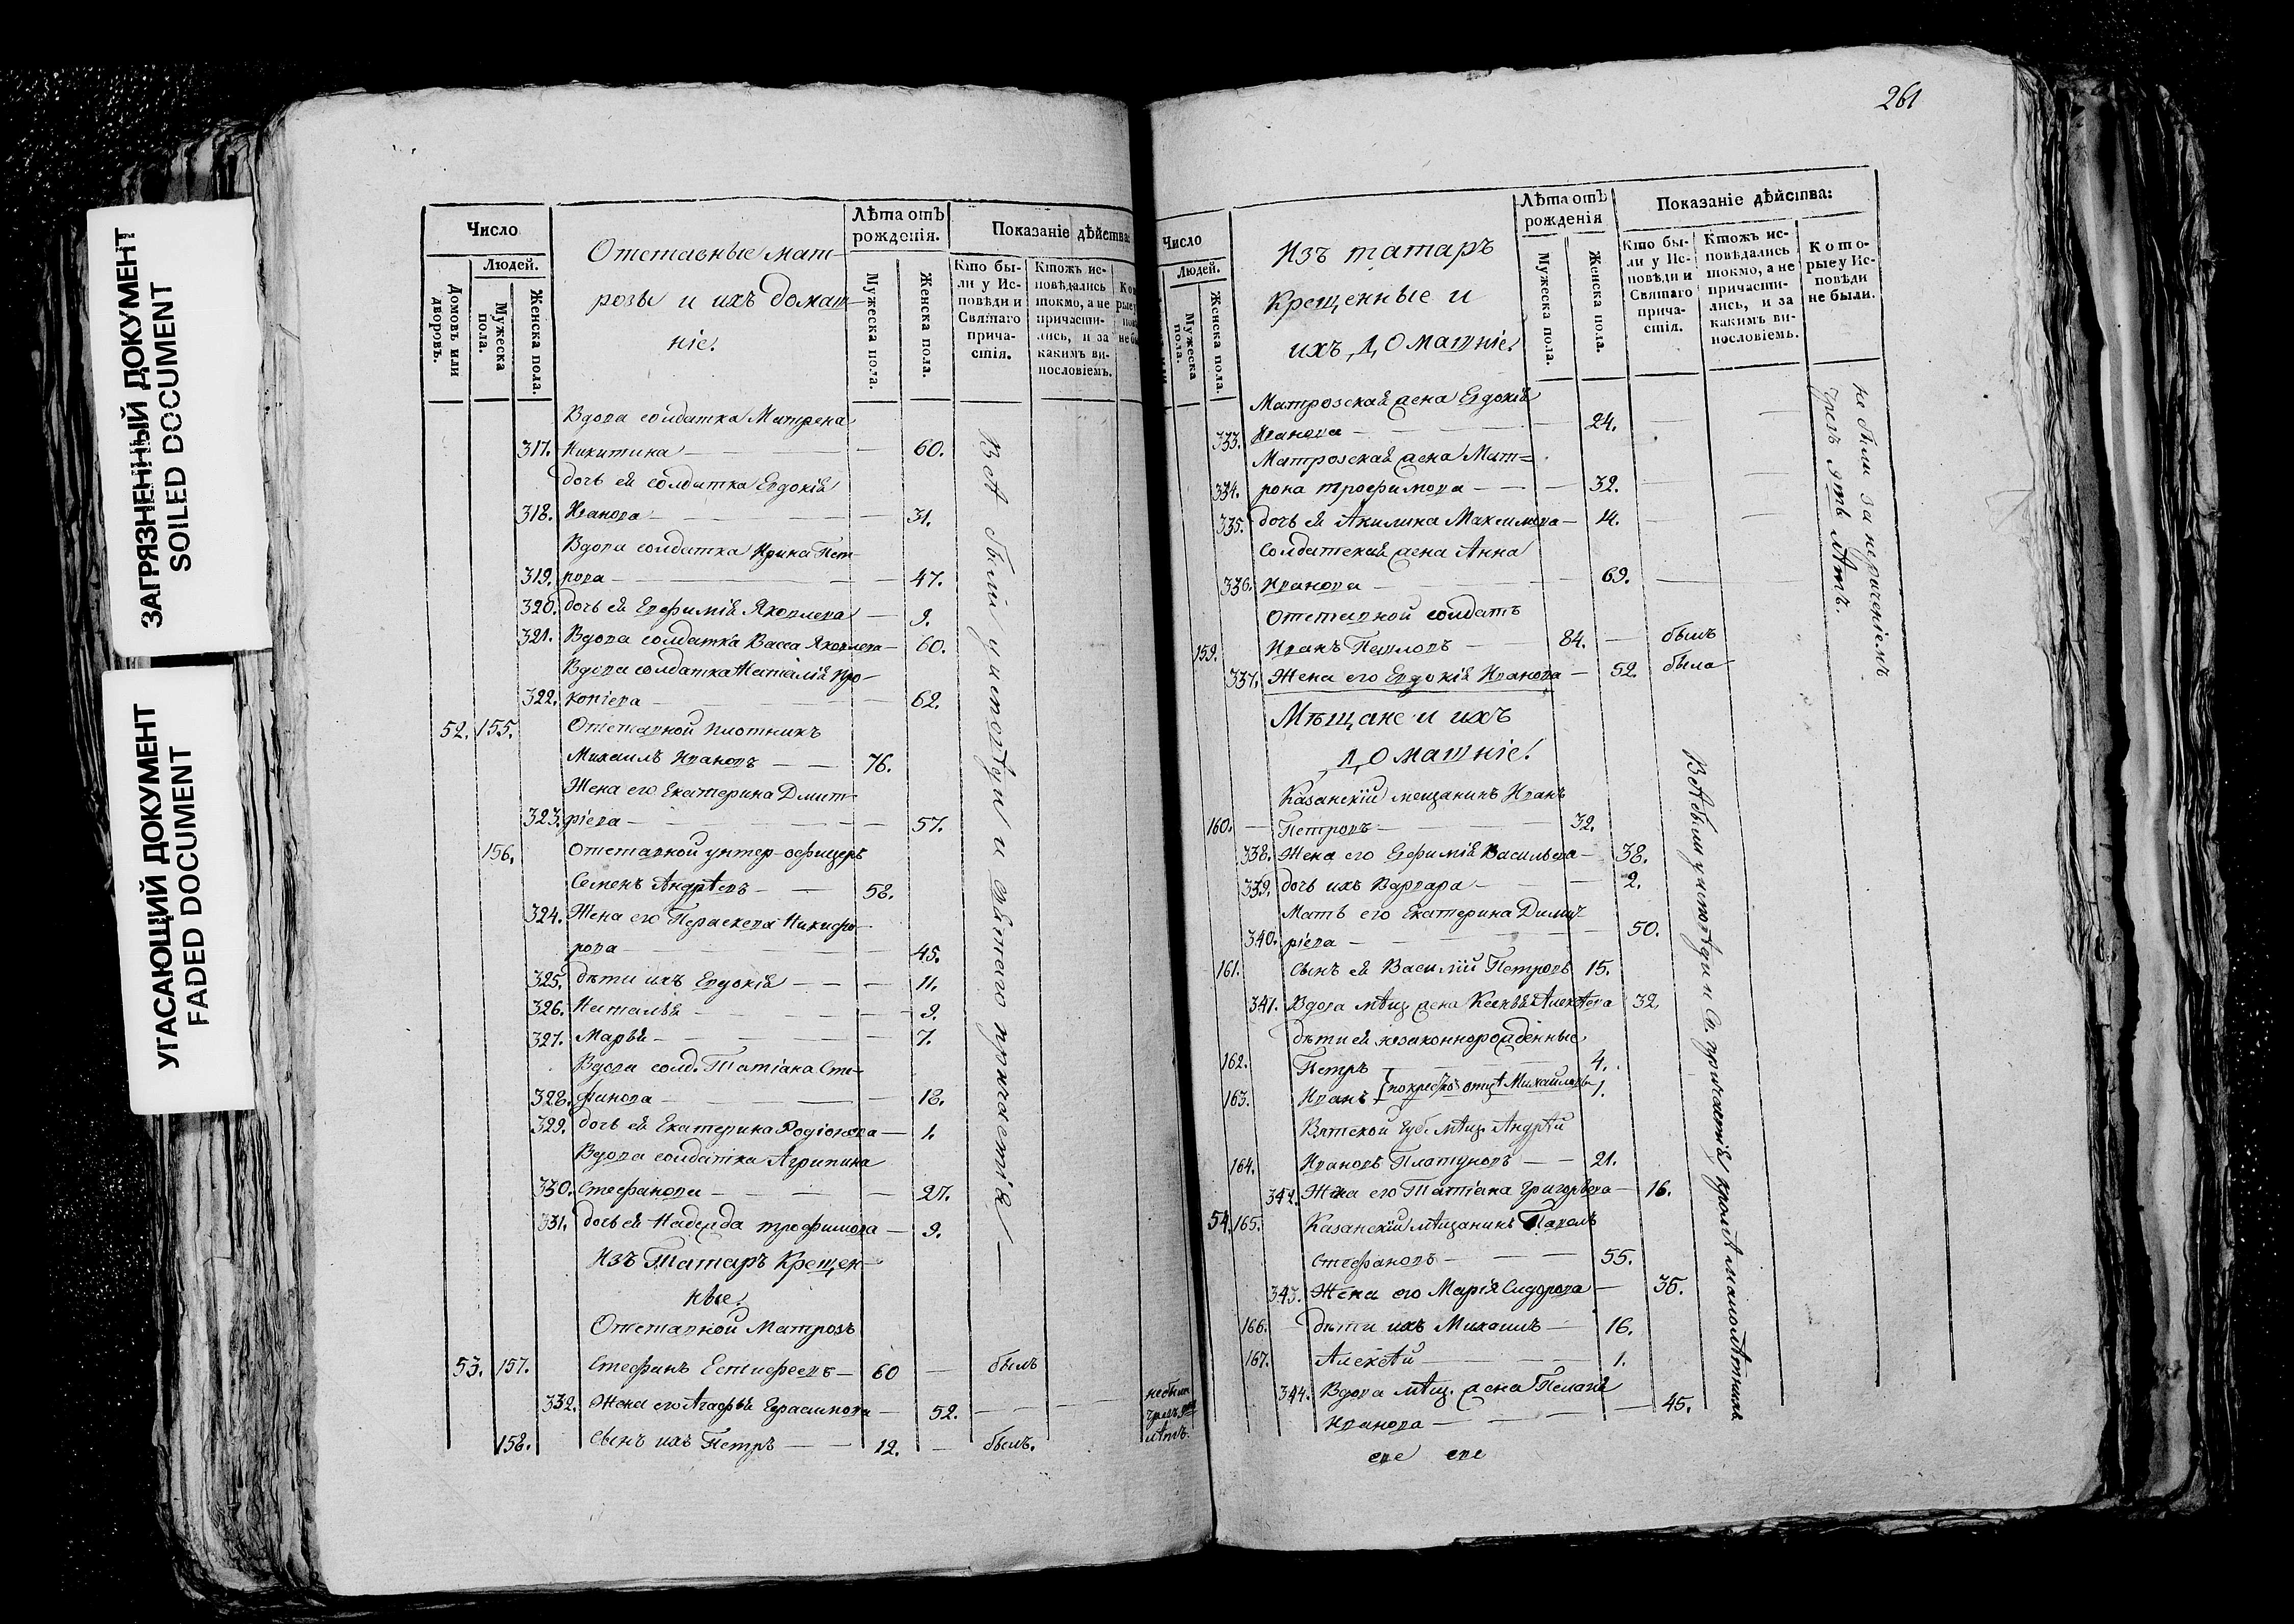 ЗАГРЯЗНЕННЫЙ ДОКУМЕНТ
SOILED DOCUMENT
УГАСАЮЩИЙ ДОКУМЕНТ
FADED DOCUMENT
Число
Людей.
Домовъ или дворовъ.
Мужеска пола.
Женска пола.
Отставные мат-
розы и ихъ домаш-
ніе.
Лѣта отъ рожденія.
Мужеска пола.
Женска пола.
Показаніе дѣйства:
Кто бы-
ли у Ис-
повѣди и
Святаго
прича-
стія.
Ктожъ ис-
повѣдались
токмо, а не
причасти-
лись, и за
какимъ ви-
нословіемъ.
Вдова солдатка Матрена
317. Никитина — 60.
дочь ея солдатка Евдокія
318. Иванова — 31.
Вдова солдатка Ирина Пет-
319. рова — 47.
320. дочь ея Евфимія Яковлева — 9.
321. Вдова солдатка Васса Яковлева — 60.
Вдова солдатка Наталія Про-
322. копіева — 62.
52. 155. Отставной плотникъ
Михаилъ Ивановъ — 76.
Жена его Екатерина Дмит-
323. ріева — 57.
156. Отставной унтер-офицеръ
Семенъ Андрѣевъ — 58.
324. Жена его Параскева Никифо-
рова — 45.
325. дѣти ихъ Евдокія — 11.
326. Наталья — 9.
327. Марья — 7.
Вдова солд. Татіана Сте-
328. фанова — 18.
329. дочь ея Екатерина Родіонова — 1.
Вдова солдатка Агрипина
330. Стефанова — 27.
331. дочь ея Надежда Трофимова — 9.
Всѣ были у исповѣди и святаго причастія
Изъ Татаръ Крещен-
ные.
Отставной Матрозъ
53. 157. Стефанъ Естифеевъ — 60 — былъ
332. Жена его Агафья Герасимова — 52. — не была
лѣтъ.
158. Сынъ ихъ Петръ — 12. — былъ.
261
Число
Людей.
Мужеска пола.
Женска пола.
Изъ татаръ
Крещенные и
ихъ домашніе.
Лѣта отъ рожденія
Мужеска пола.
Женска пола.
Показаніе дѣйства:
Кто бы-
ли у Ис-
повѣди и
Святаго
прича-
стія.
Ктожъ ис-
повѣдались
токмо, а не
причасти-
лись, и за
какимъ ви-
нословіемъ.
Кото-
рые у Ис-
повѣди
не были.
Матрозская жена Евдокія
333. Иванова — 24.
Матрозская жена Мат=
334. рона Трофимова — 32.
335. дочь ея Акилина Максимова — 14.
Солдатская жена Анна
336. Иванова — 69.
не были за нерачениемъ
чрезъ пять лѣтъ.
Отставной солдатъ
159. Иванъ Павловъ — 84. — былъ
337. Жена его Евдокія Иванова — 52. была
Мѣщане и ихъ
домашніе.
Казанскій мещанинъ Иванъ
160. Петровъ — 32.
338. Жена его Евфимія Васильева — 38.
339. дочь ихъ Варвара — 2.
Мать его Екатерина Димит-
340. ріева — 50.
161. Сынъ ея Василій Петровъ 15.
341. Вдова мѣщ. жена Ксенья Алексѣева 32.
дѣти ея незаконнорожденные
162. Петръ — 4.
163. Иванъ по крестн. отцѣ Михайловы 1.
Вятской губ. мѣщ. Андрей
164. Ивановъ Платуновъ — 21.
342. Жена его Татіана Григорьева — 16.
54. 165. Казанскій мѣщанинъ Павелъ
Стефановъ — 55.
343. Жена его Марія Сидорова — 35.
166. дѣти ихъ Михаилъ — 16.
167. Алексѣй — 1.
344. Вдова мѣщ. жена Пелагія
Иванова — 45.
Всѣ были у исповѣди и с. причастія кромѣ малолѣтныхъ